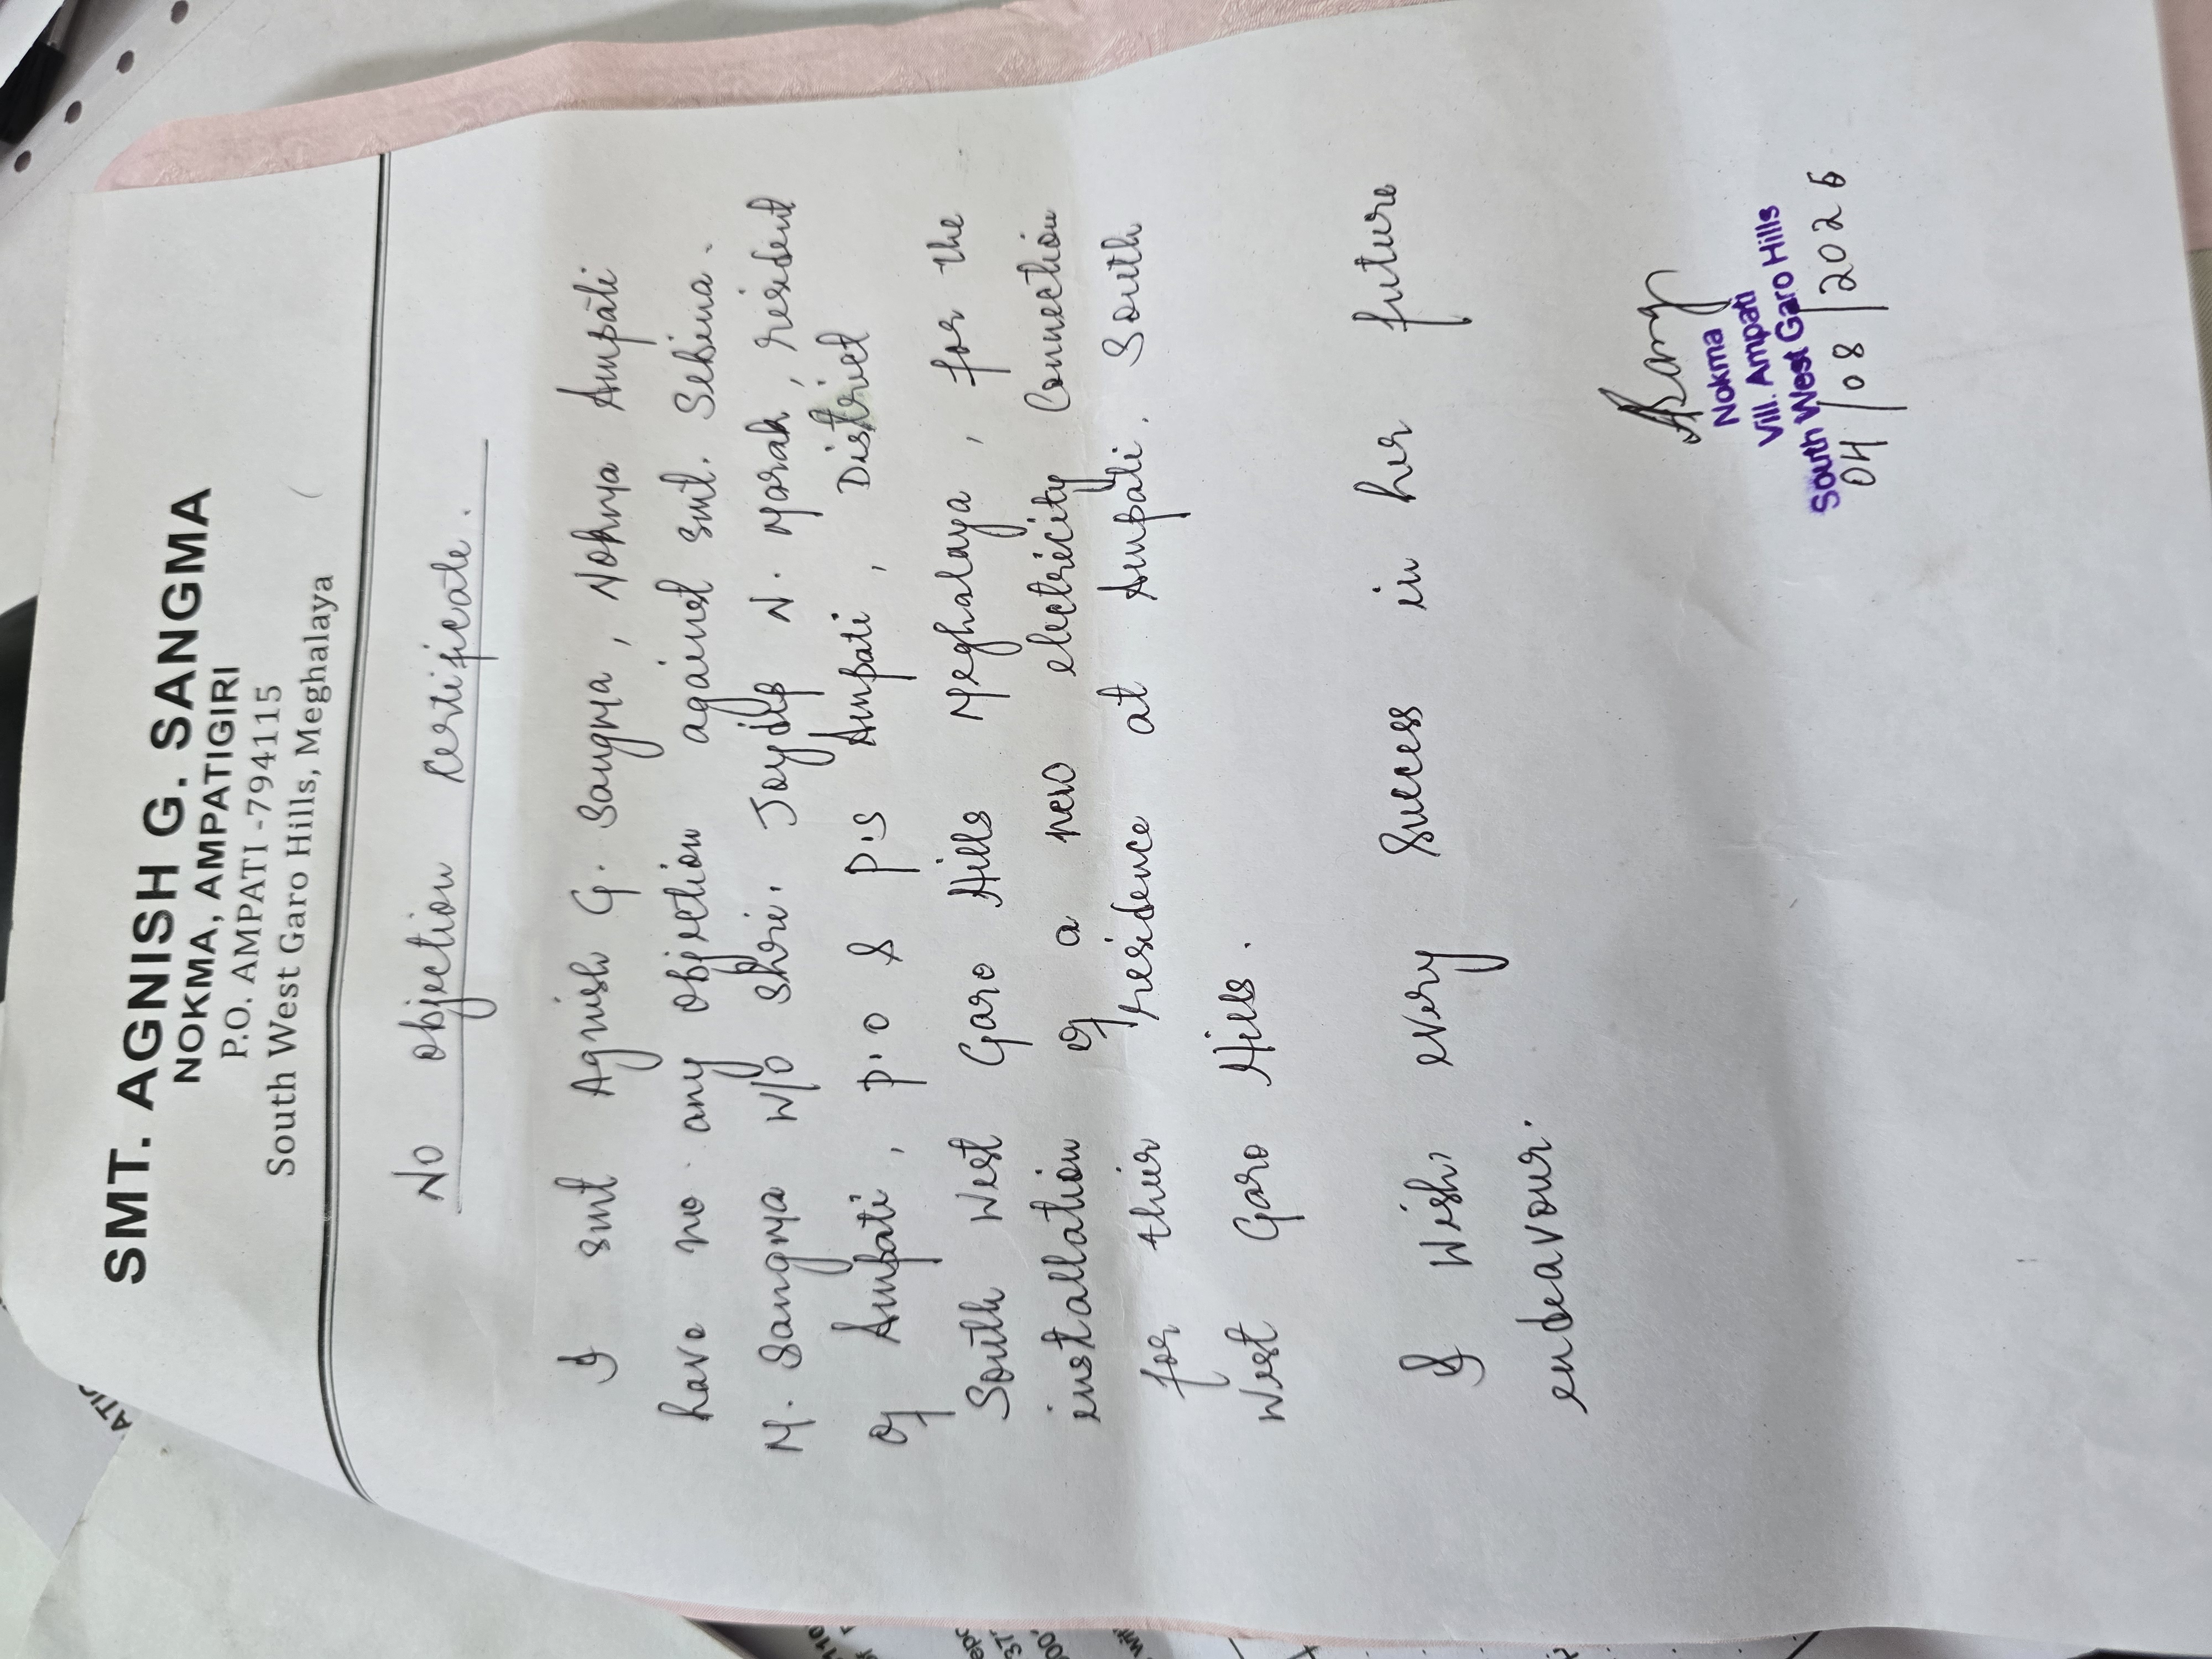 SMT. AGNISH G. SANGMA
NOKMA, AMPATIGIRI
P.O. AMPATI -794115
South West Garo Hills, Meghalaya
No objection certificate.
I smt Agnish G. Sangma, Nokma Ampati
have no any objection against smt. Sebina.
M. Sangma W/O Shri. Joydip N. Marak, resident
Of Ampati, P.O & P.S Ampati, District
South West Garo Hills Meghalaya, for the
installation of a new electricity Connection
for thier residence at Ampati. South
West Garo Hills.
I Wish every Success in her future
endeavour.
Nokma
Vill. Ampati
South West Garo Hills
04/08/2026